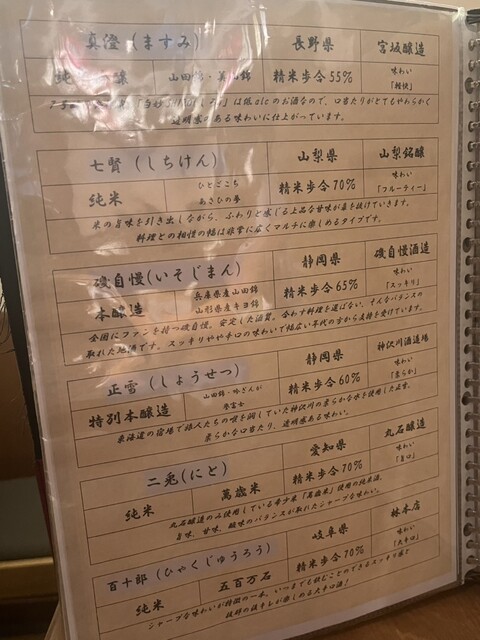 真澄（ますみ） 長野県 宮坂醸造
純 醸 山田錦・美山錦 精米歩合 55% 味わい「軽快」
は低alcのお酒なので、口当たりがとてもやわらかく
透明感のある味わいに仕上がっています。
七賢（しちけん） 山梨県 山梨銘醸
純米 ひとごこち あさひの夢 精米歩合 70% 味わい「フルーティー」
米の旨味を引き出しながら、ふわりと感じる上品な甘味が鼻を抜けていきます。
料理との相性の幅は非常に広くマルチに楽しめるタイプです。
磯自慢(いそじまん) 静岡県 磯自慢酒造
本醸造 兵庫県産山田錦 山形県産キヨ錦 精米歩合 65% 味わい「スッキリ」
全国にファンを持つ磯自慢。安定した酒質、合わす料理を選ばない、そんなバランスの
取れた地酒です。スッキリやや辛口の味わいで幅広い年代の方から支持を受けています。
正雪（しょうせつ） 静岡県 神沢川酒造場
特別本醸造 山田錦・吟ぎんが 誉富士 精米歩合 60% 味わい「柔らか」
東海道の宿場で旅人たちの喉を潤していた神沢川の柔らかな水を使用した正雪。
柔らかな口当たり、透明感ある味わい。
二兎(にと) 愛知県 丸石醸造
純米 萬歳米 精米歩合 70% 味わい「旨口」
丸石醸造のみ使用している希少米「萬歳米」使用の純米酒。
旨味、甘味、酸味のバランスが取れたシャープな味わい。
百十郎（ひゃくじゅうろう） 岐阜県 林本店
純米 五百万石 精米歩合 70% 味わい「大辛口」
シャープな味わいが特徴の一本。いつまでも飲むことのできるスッキリ感と
抜群の後キレが楽しめる大辛口酒！